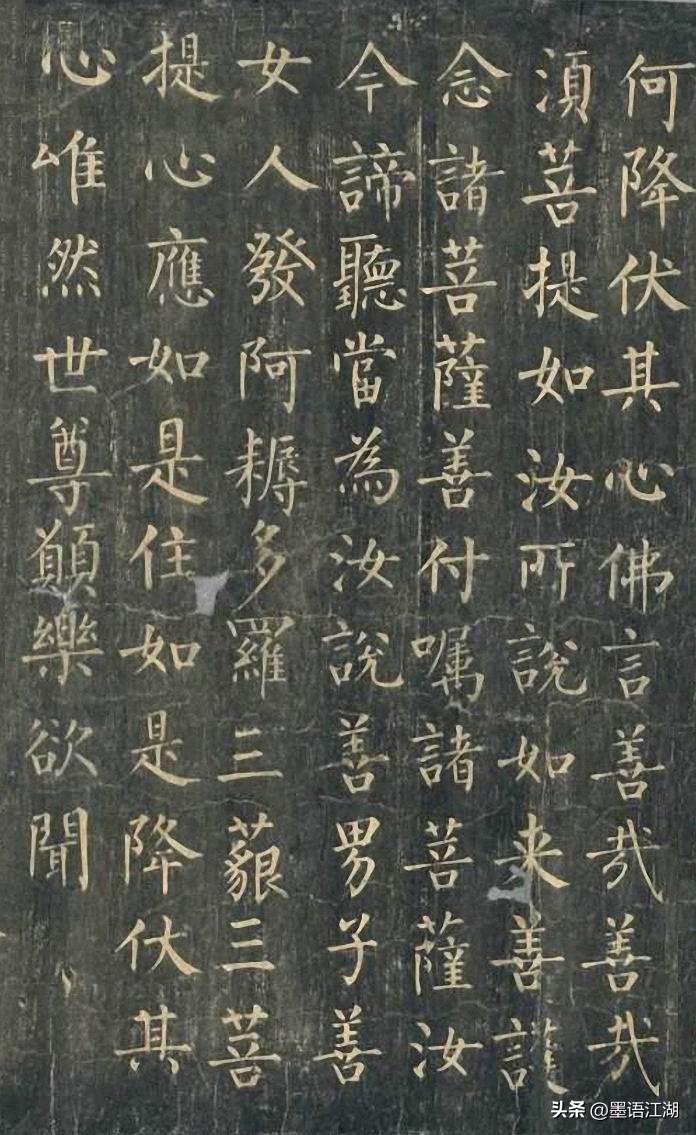 何降伏其心佛言善哉善哉
須菩提如汝所說如来善護
念諸菩薩善付囑諸菩薩汝
今諦聽當為汝說善男子善
女人發阿耨多羅三藐三菩
提心應如是住如是降伏其
心唯然世尊願樂欲聞
头条 @墨语江湖